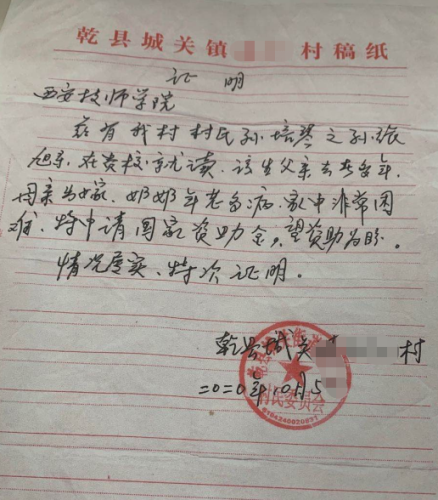 乾县城关镇 村稿纸
证明
西安技师学院
兹有我村村民孙培琴之孙张
旭东,在贵校就读,该生父亲去世多年,
母亲为嫁,奶奶年老多病,家中非常困
难,特申请国家资助金,望资助为盼。
情况属实,特次证明。
乾县城关 村
二〇二〇年10月5
村民委员会